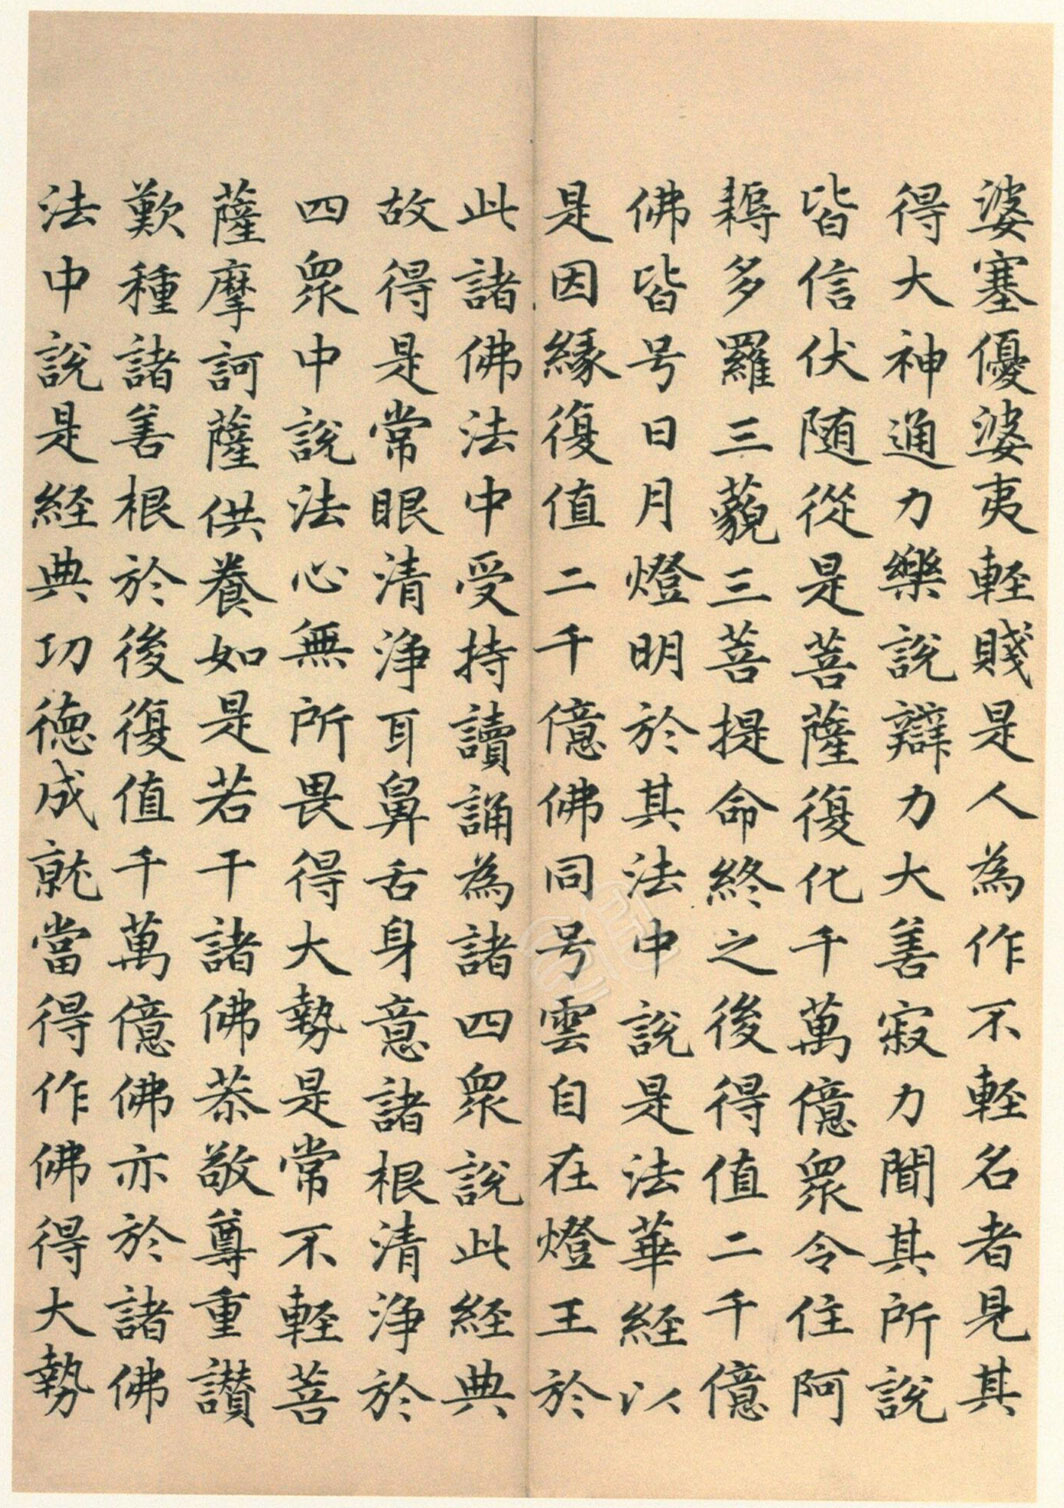 婆塞優婆夷輕賤是人為作不輕名者見其
得大神通力樂說辯力大善寂力聞其所說
皆信伏随從是菩薩復化千萬億眾令住阿
耨多羅三藐三菩提命終之後得值二千億
佛皆号日月燈明於其法中說是法華經以
是因緣復值二千億佛同号雲自在燈王於
此諸佛法中受持讀誦為諸四眾說此經典
故得是常眼清淨耳鼻舌身意諸根清淨於
四眾中說法心無所畏得大勢是常不輕菩
薩摩訶薩供養如是若干諸佛恭敬尊重讃
歎種諸善根於後復值千萬億佛亦於諸佛
法中說是經典功德成就當得作佛得大勢